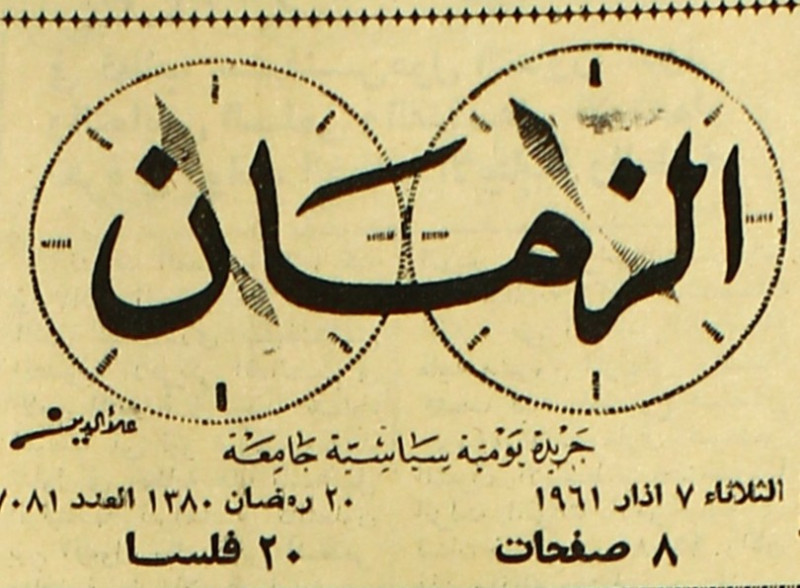 الزمان
علاءالدين
جَريدة يَومية سيَاسيّة جَامعَة
الثلاثاء ٧ اذار ١٩٦١ ٢٠ رمضان ١٣٨٠ العدد ٧٠٨١
٨ صفحات ٢٠ فلسا